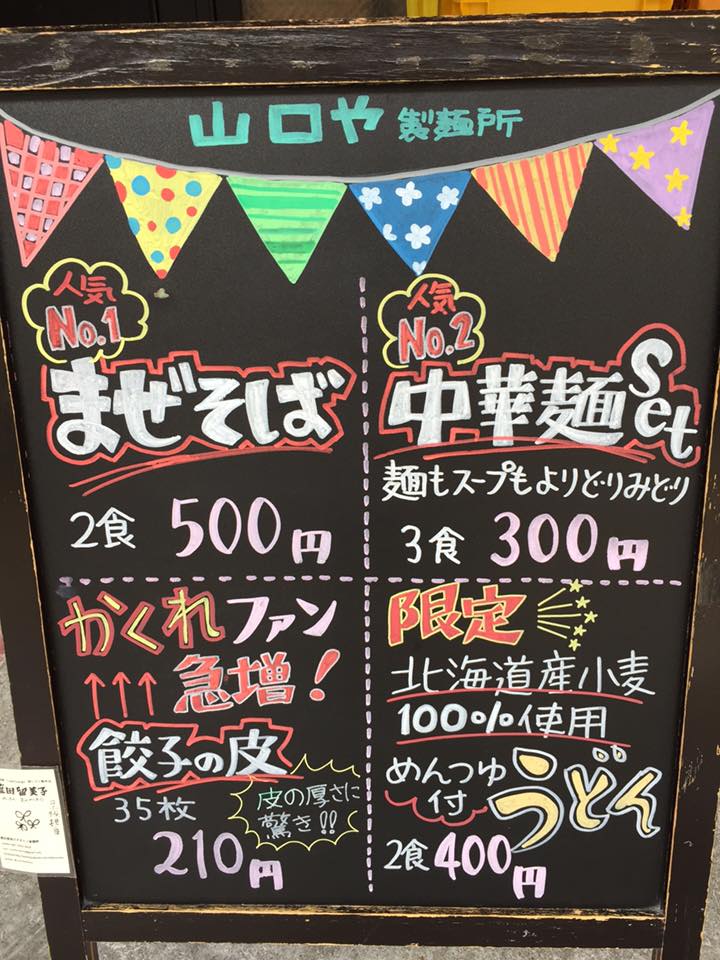 山口や 製麺所
人気
No.1
まぜそば
2食 500円
人気
No.2
中華麺Set
麺もスープもよりどりみどり
3食 300円
かくれファン
↑↑↑ 急増!
餃子の皮
35枚
皮の厚さに
驚き!!
210円
限定
北海道産小麦
100%使用
めんつゆ
付
うどん
2食 400円